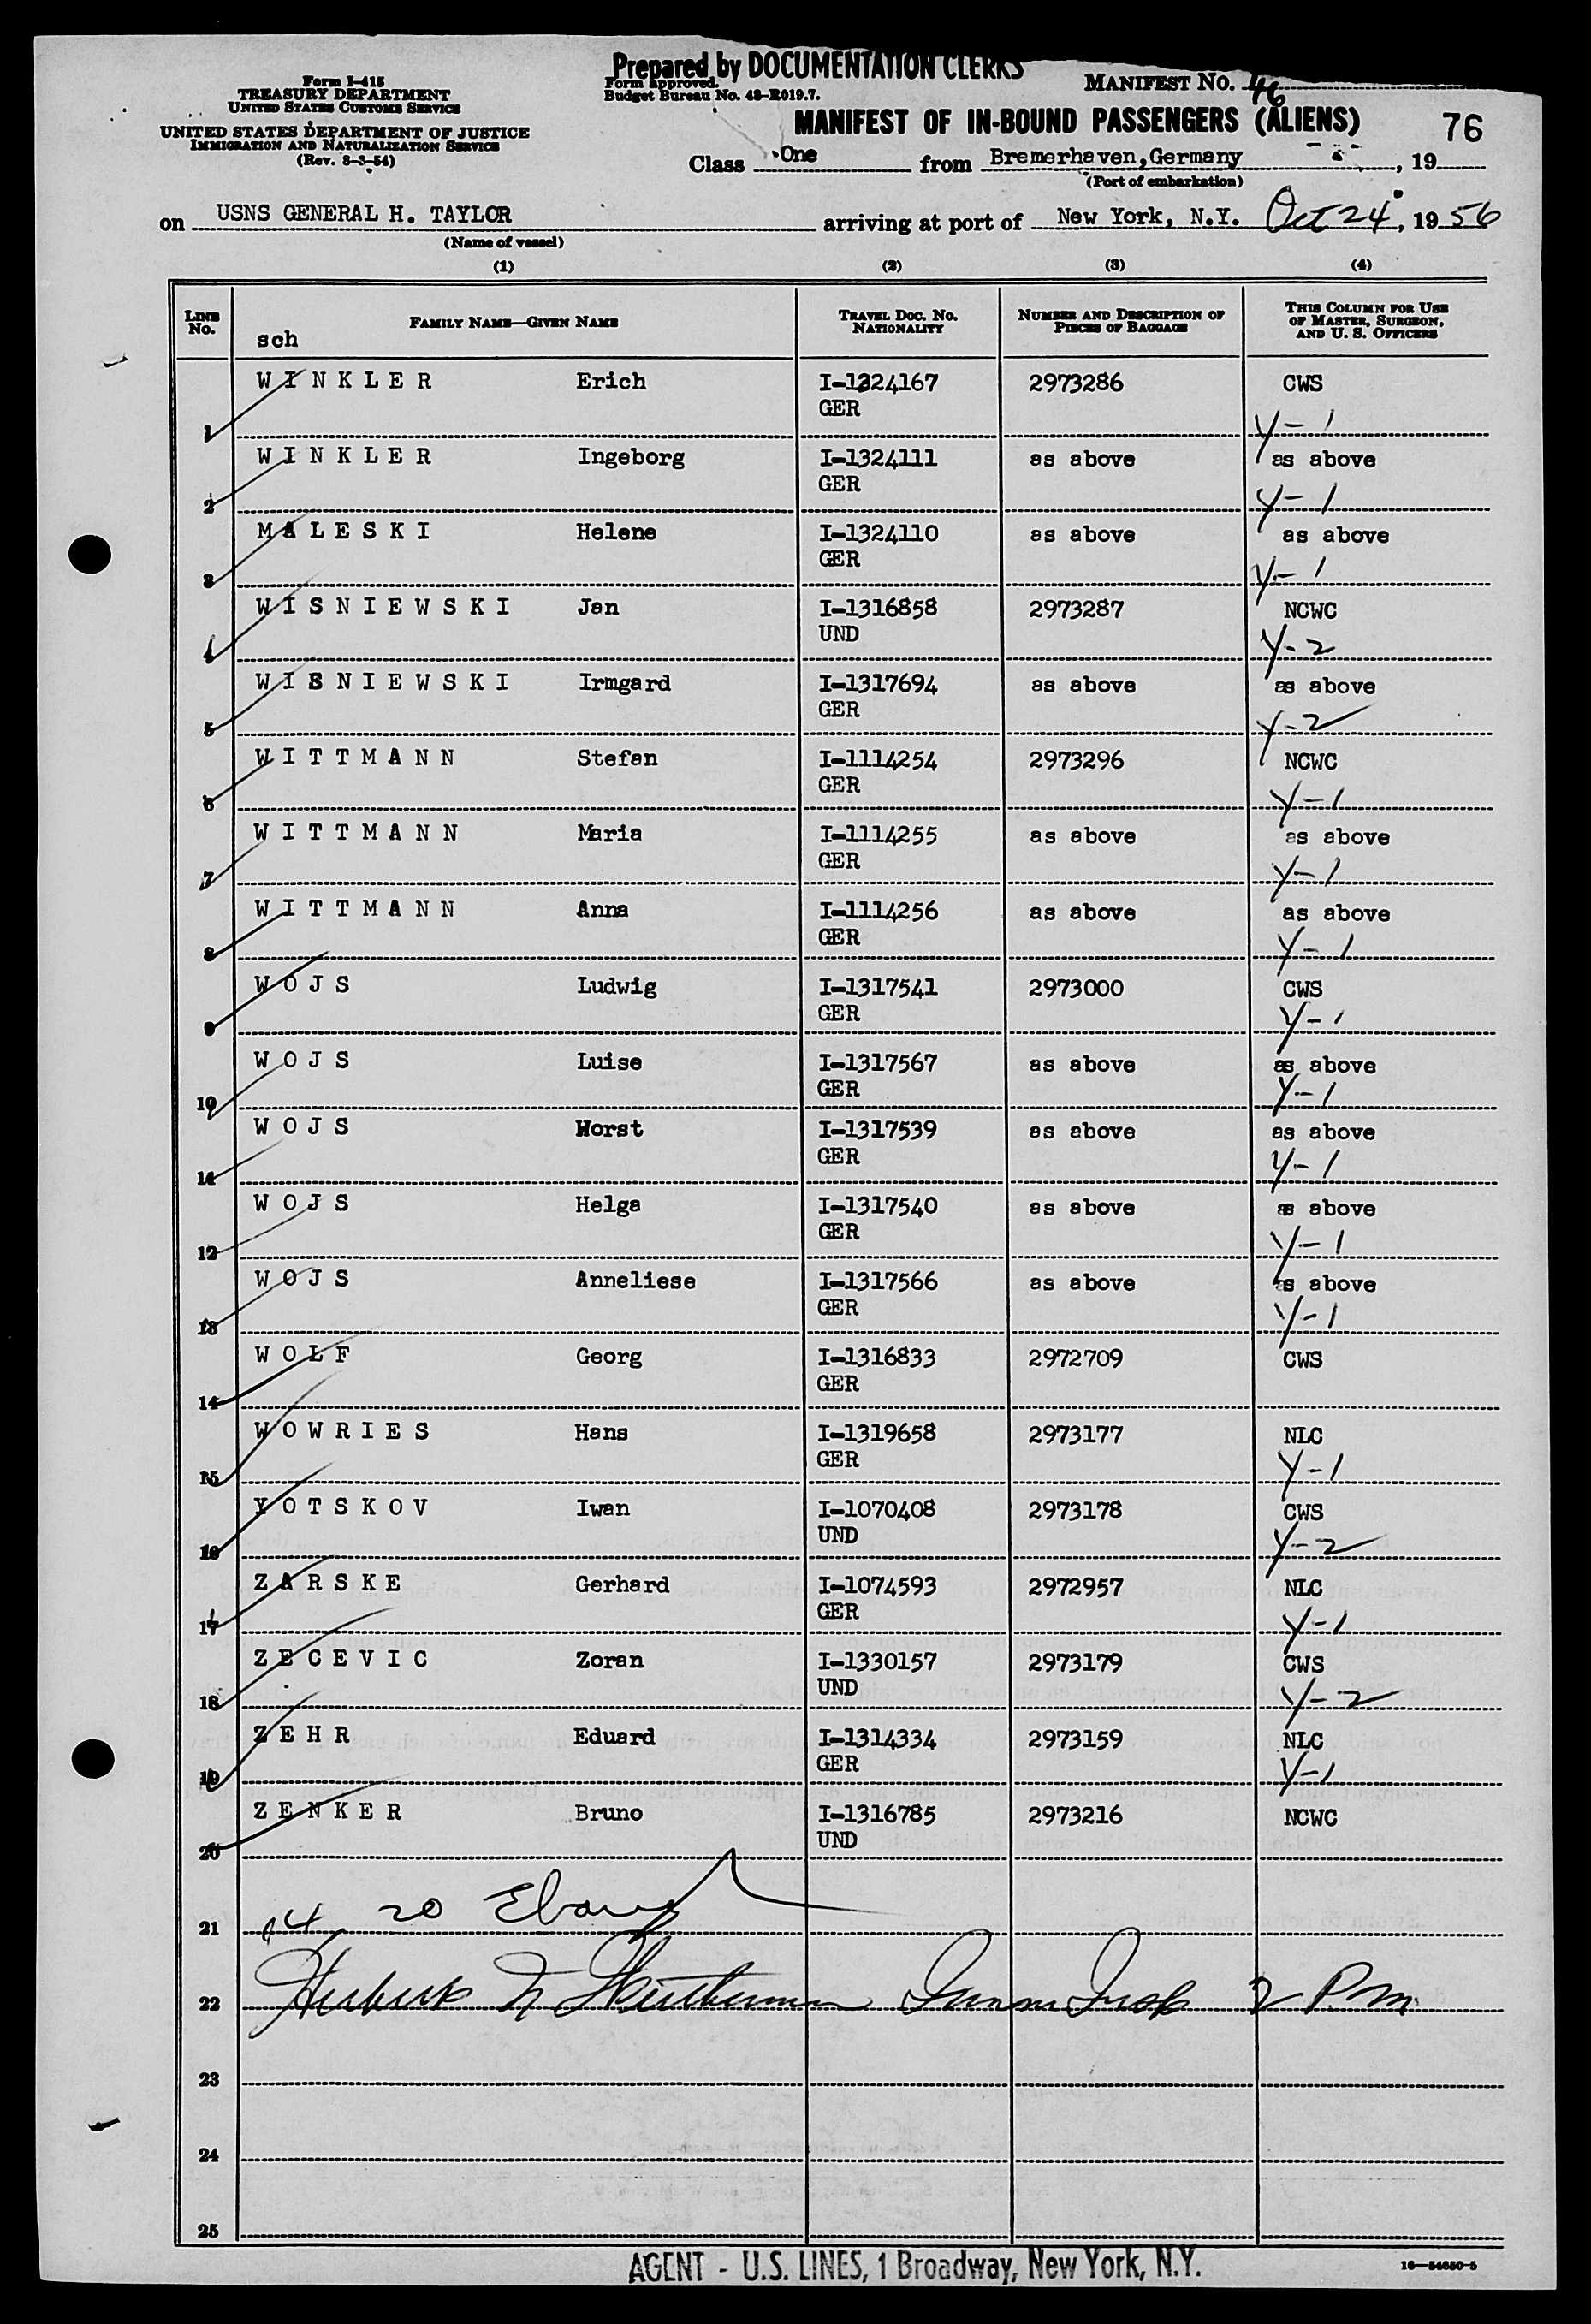 Prepared by DOCUMENTATION CLERKS
Form I-415
TREASURY DEPARTMENT
UNITED STATES CUSTOMS SERVICE
Form approved.
Budget Bureau No. 43-R019.7.
MANIFEST NO. 46
UNITED STATES DEPARTMENT OF JUSTICE
IMMIGRATION AND NATURALIZATION SERVICE
(Rev. 8-3-54)
MANIFEST OF IN-BOUND PASSENGERS (ALIENS) 76
Class One from Bremerhaven, Germany, 19
(Port of embarkation)
on USNS GENERAL H. TAYLOR arriving at port of New York, N.Y. Oct 24, 1956
(Name of vessel)
(1) (2) (3) (4)
LINE No. FAMILY NAME—GIVEN NAME TRAVEL DOC. NO. NATIONALITY NUMBER AND DESCRIPTION OF PIECES OF BAGGAGE THIS COLUMN FOR USE OF MASTER, SURGEON, AND U. S. OFFICERS
sch
WINKLER Erich I-1324167 2973286 CWS
1 GER Y-1
WINKLER Ingeborg I-1324111 as above as above
2 GER Y-1
MALESKI Helene I-1324110 as above as above
3 GER Y-1
WISNIEWSKI Jan I-1316858 2973287 NCWC
4 UND Y-2
WISNIEWSKI Irmgard I-1317694 as above as above
5 GER Y-2
WITTMANN Stefan I-1114254 2973296 NCWC
6 GER Y-1
WITTMANN Maria I-1114255 as above as above
7 GER Y-1
WITTMANN Anna I-1114256 as above as above
8 GER Y-1
WOJS Ludwig I-1317541 2973000 CWS
9 GER Y-1
WOJS Luise I-1317567 as above as above
10 GER Y-1
WOJS Horst I-1317539 as above as above
11 GER Y-1
WOJS Helga I-1317540 as above as above
12 GER Y-1
WOJS Anneliese I-1317566 as above as above
13 GER Y-1
WOLF Georg I-1316833 2972709 CWS
14 GER
WOWRIES Hans I-1319658 2973177 NLC
15 GER Y-1
YOTSKOV Iwan I-1070408 2973178 CWS
16 UND Y-2
ZARSKE Gerhard I-1074593 2972957 NLC
17 GER Y-1
ZECEVIC Zoran I-1330157 2973179 CWS
18 UND Y-2
ZEHR Eduard I-1314334 2973159 NLC
19 GER Y-1
ZENKER Bruno I-1316785 2973216 NCWC
20 UND
21 20
22 2 P.m.
23
24
25
AGENT - U.S. LINES, 1 Broadway, New York, N.Y.
16—54650-5